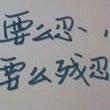 要么忍、,
要么残忍